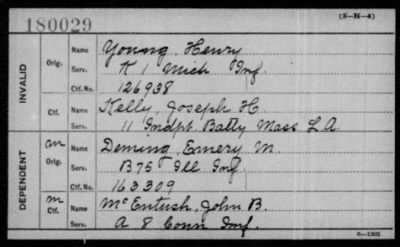 180029 (3-H-4)
INVALID
Orig. Name Young, Henry
Serv. K 1 Mich Inf.
Ctf. No. 126938
Ctf. Name Kelly, Joseph H.
Serv. 11 Indpt Batty Mass L.A.
DEPENDENT
m Orig. Name Deming, Emery M.
Serv. B 75 Ill Inf.
Ctf. No. 163309
m Ctf. Name McEntush, John B.
Serv. A 8 Conn Inf.